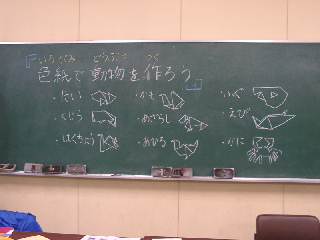 いろがみ どうぶつ つく
「色紙で動物を作ろう」
・たい
・くじら
・はくちょう
・かも
・あざらし
・あひる
・いぐ
・えび
・かに